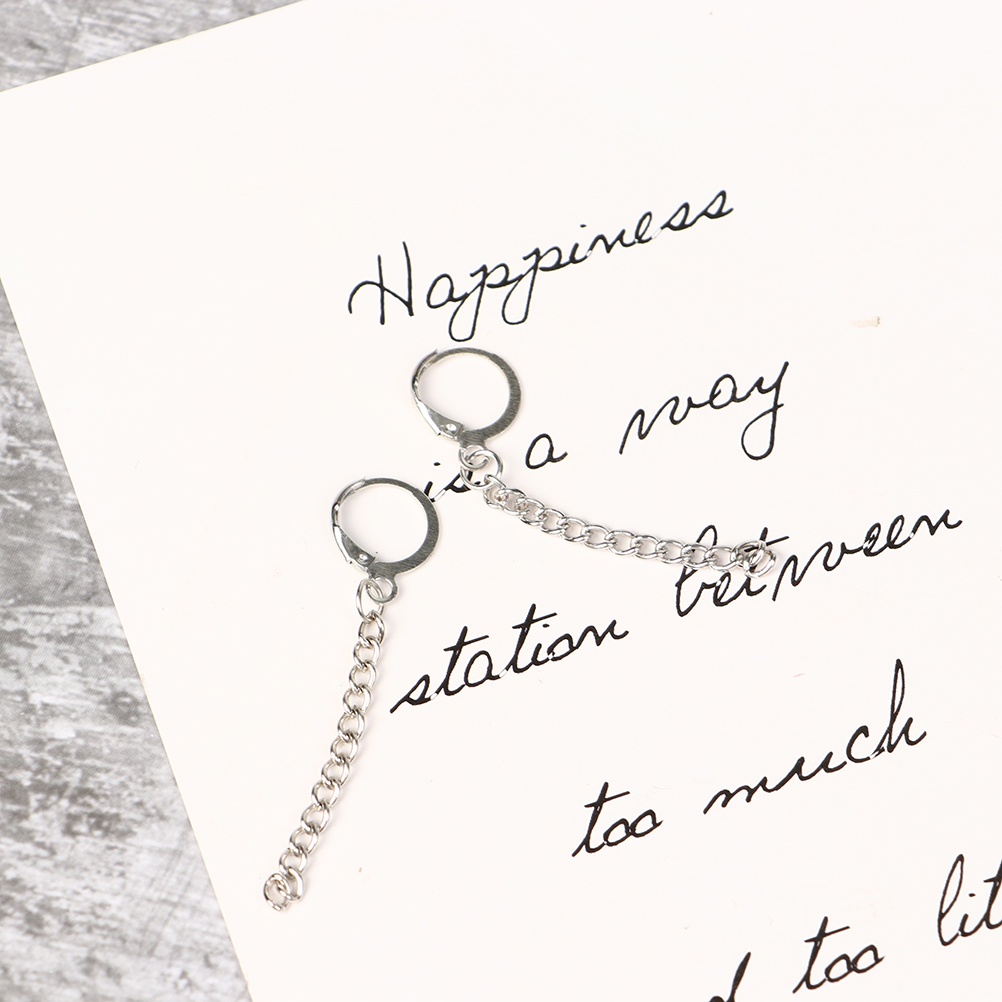 Happiness
is a way
station between
too much
too